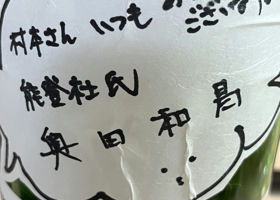 村本さん いつも
ございな
能登杜氏
奥田和昌